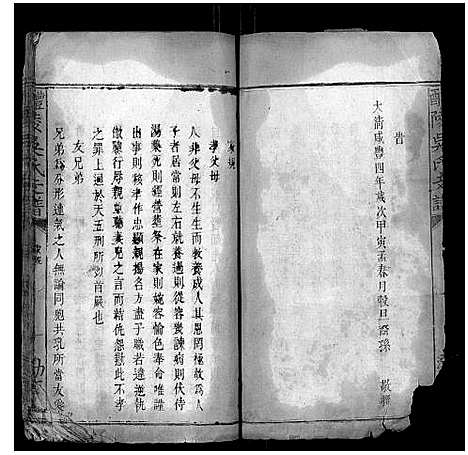 醴陵吳氏支譜
旹
大清咸豐四年歲次甲寅孟春月穀旦裔孫 敬鐫
家規
孝父母
人非父母不生生而敎養成人其恩罔極故爲人
子者居當則左右就養過則從容幾諫病則伏侍
湯藥死則經營葬祭在家則婉容愉色奉命唯謹
出事則移孝作忠顯親揚名方盡子職若違逆執
傲縈行辱親聽妻兒之言而精洗怨懟此不孝
之罪上通於天五刑所亟首嚴也
友兄弟
兄弟爲分形連氣之人無論同胞共乳所當友愛
醴陵吳氏支譜